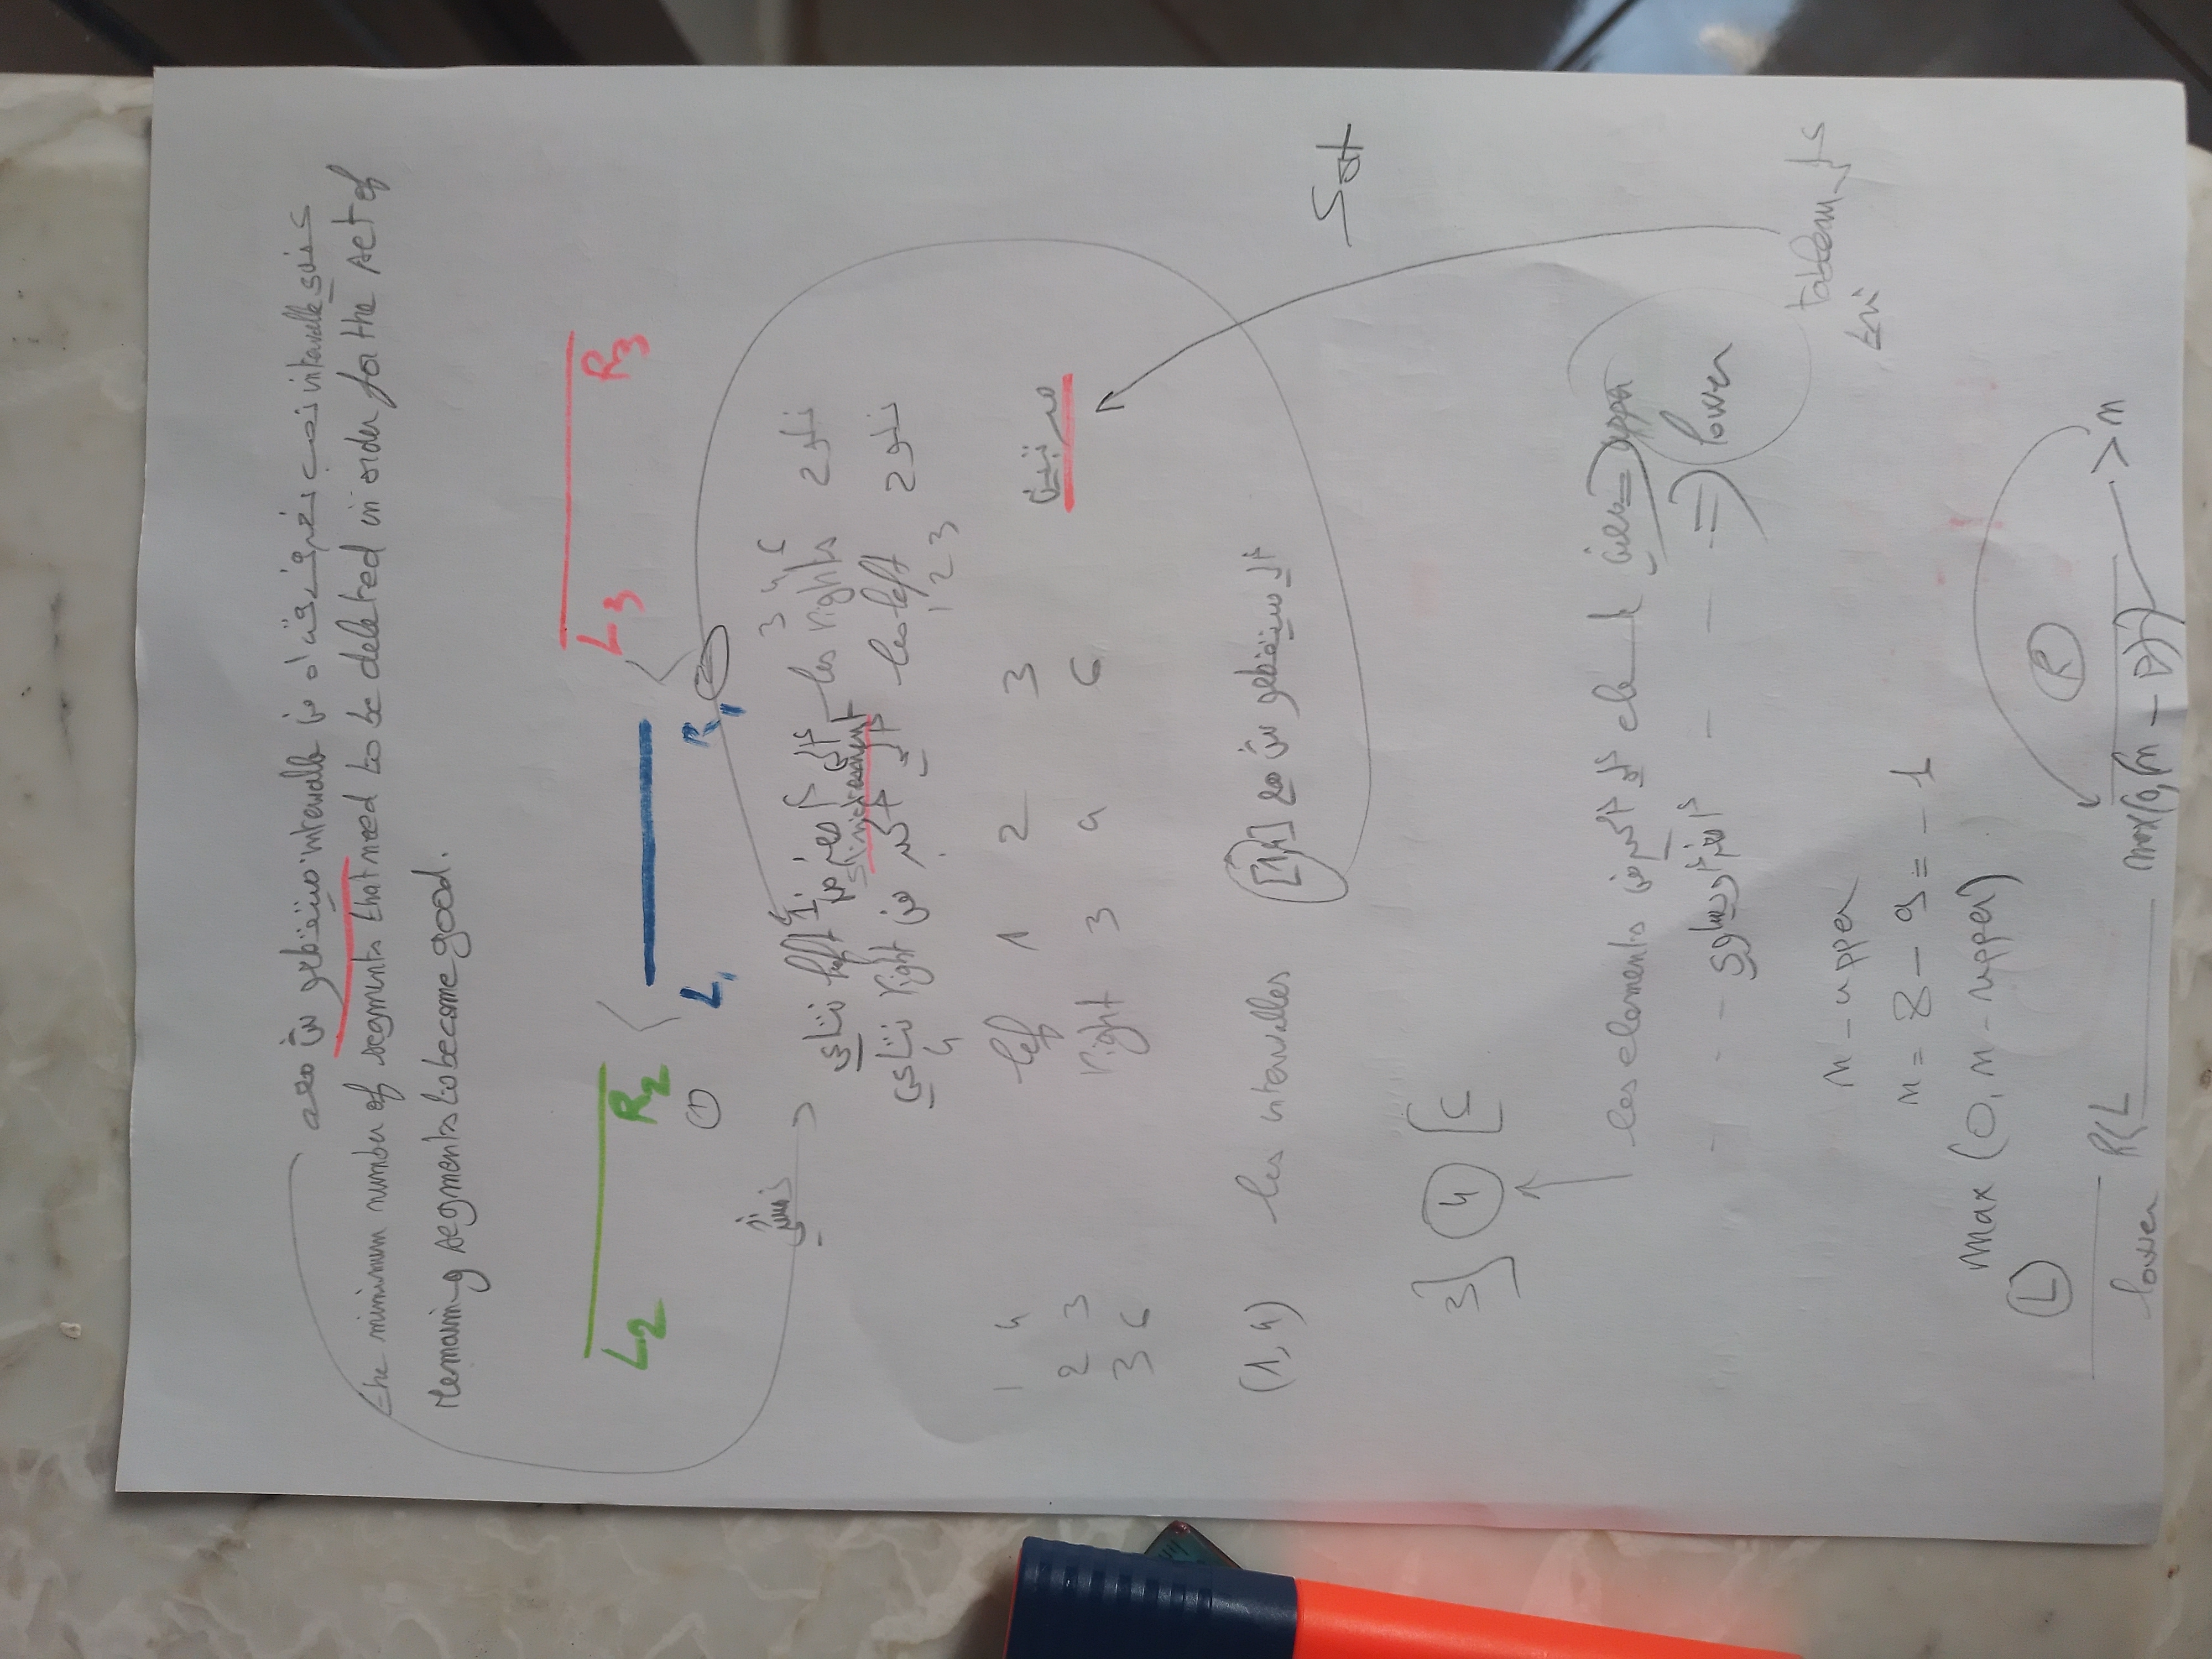 عندي intervalle نحب نعرف قداه من intervalle ميتقطعوش معه
the minimum number of segments that need to be deleted in order for the set of
remaining segments to become good.
L2 R2 L1 R1 L3 R3
1
نمشي
3 4 6
نلوج les rights الي أصغر من left نتاعي
1
strictement
نلوج les left الي أكبر من right نتاعي
4 1 2 3
1 4 lef 1 2 3
مرتبين
2 3 right 3 4 6
3 6
(1, 4) les intervalles الي ميتقطعوش مع [1,4]
Sort
3] 4 [6
les elements الي أكبر من element معين => upper
- - - أصغر أو يساوي - - => lower
tableau
tri
n - upper
n = 8 - 9 = - 1
max (0, n - upper)
L R
lower R<L max(0, (n - )) > n